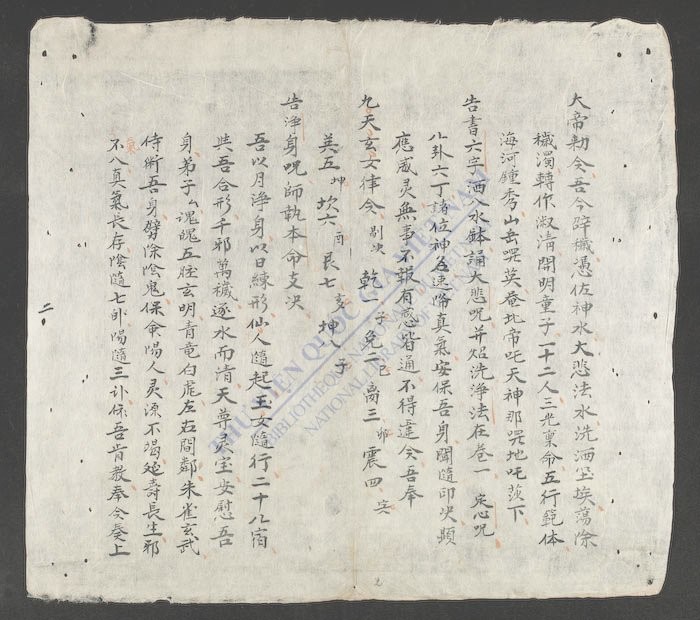 大帝勅令吾今辟穢憑仗神水大悲法水洗洒塵埃蕩除
穢濁轉作淑清開明童子一十二人三光稟命五行範体
海河鍾秀山岳咒英奄北帝吒天神那咒地吒莎下
告書六字洒入水鉢誦大悲咒并炤洗淨法在卷一 定心咒
八卦六丁諸位神名速降真氣安保吾身聞隨印决顯
應威灵無事不報有感皆通不得違令吾奉
九天玄女律令 乾一 子 兌二 巳 离三 卯 震四
巽五 坤 坎六 酉 艮七 亥 坤八 子
告淨身咒師執本命支决
吾以月淨身以日練形仙人隨起玉女隨行二十八宿
與吾合形千邪萬穢逐水而清天尊灵宝安慰吾
身弟子厶魂魄五脏玄明青竜白虎左右間鄰朱雀玄武
侍衛吾身劈除陰鬼保命陽人灵源不竭延壽長生邪
氣
不入真氣長存陰隨七 陽隨三 保吾 奉令奏上
二
THƯ VIỆN QUỐC GIA VIỆT NAM
BIBLIOTHEQUE NATIONALE DU VIETNAM
NATIONAL LIBRARY OF VIETNAM